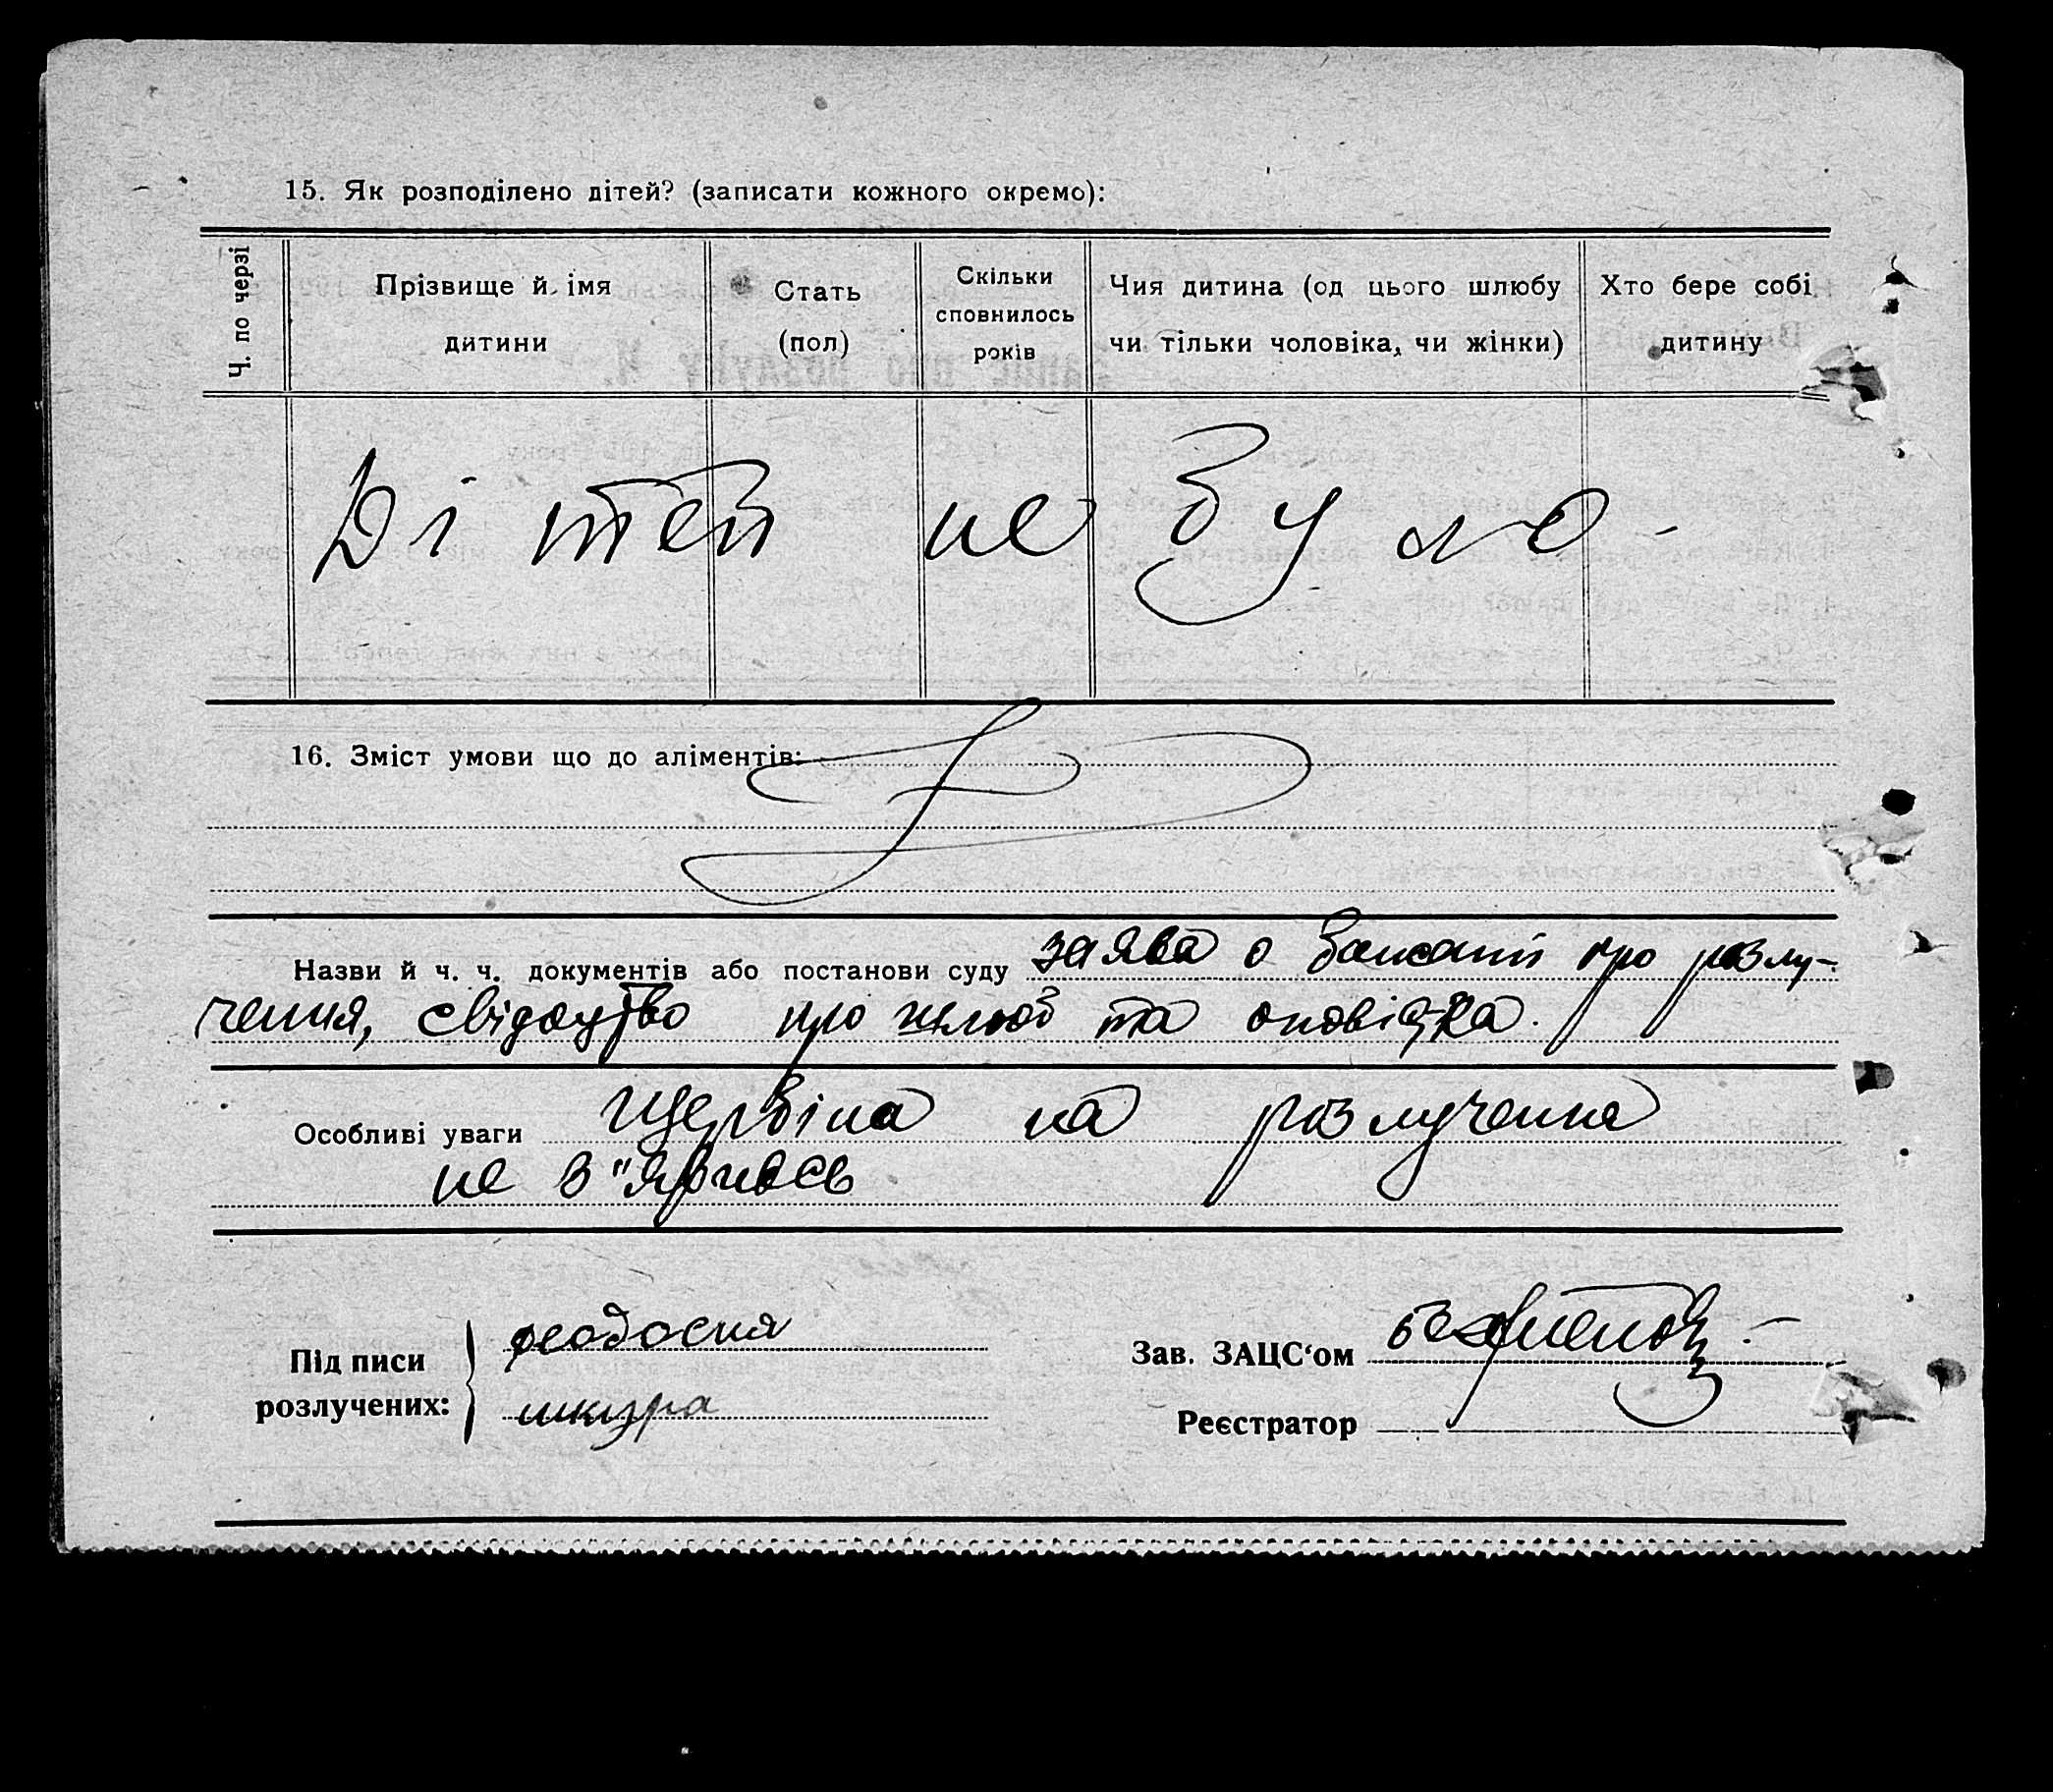 15. Як розподілено дітей? (записати кожного окремо):
Ч. по черзі
Прізвище й імя дитини
Стать (пол)
Скільки сповнилось років
Чия дитина (од цього шлюбу чи тільки чоловіка, чи жінки)
Хто бере собі дитину
Дітей не було -
16. Зміст умови що до аліментів:
Назви й ч. ч. документів або постанови суду заява о бажанні про розлу-
чення, свідоцтво про шлюб та оповідка.
Особливі уваги Щербіна на розлучення
не з"явилась
Підписи розлучених:
феодосия
шкура
Зав. ЗАЦС‘ом
Реєстратор